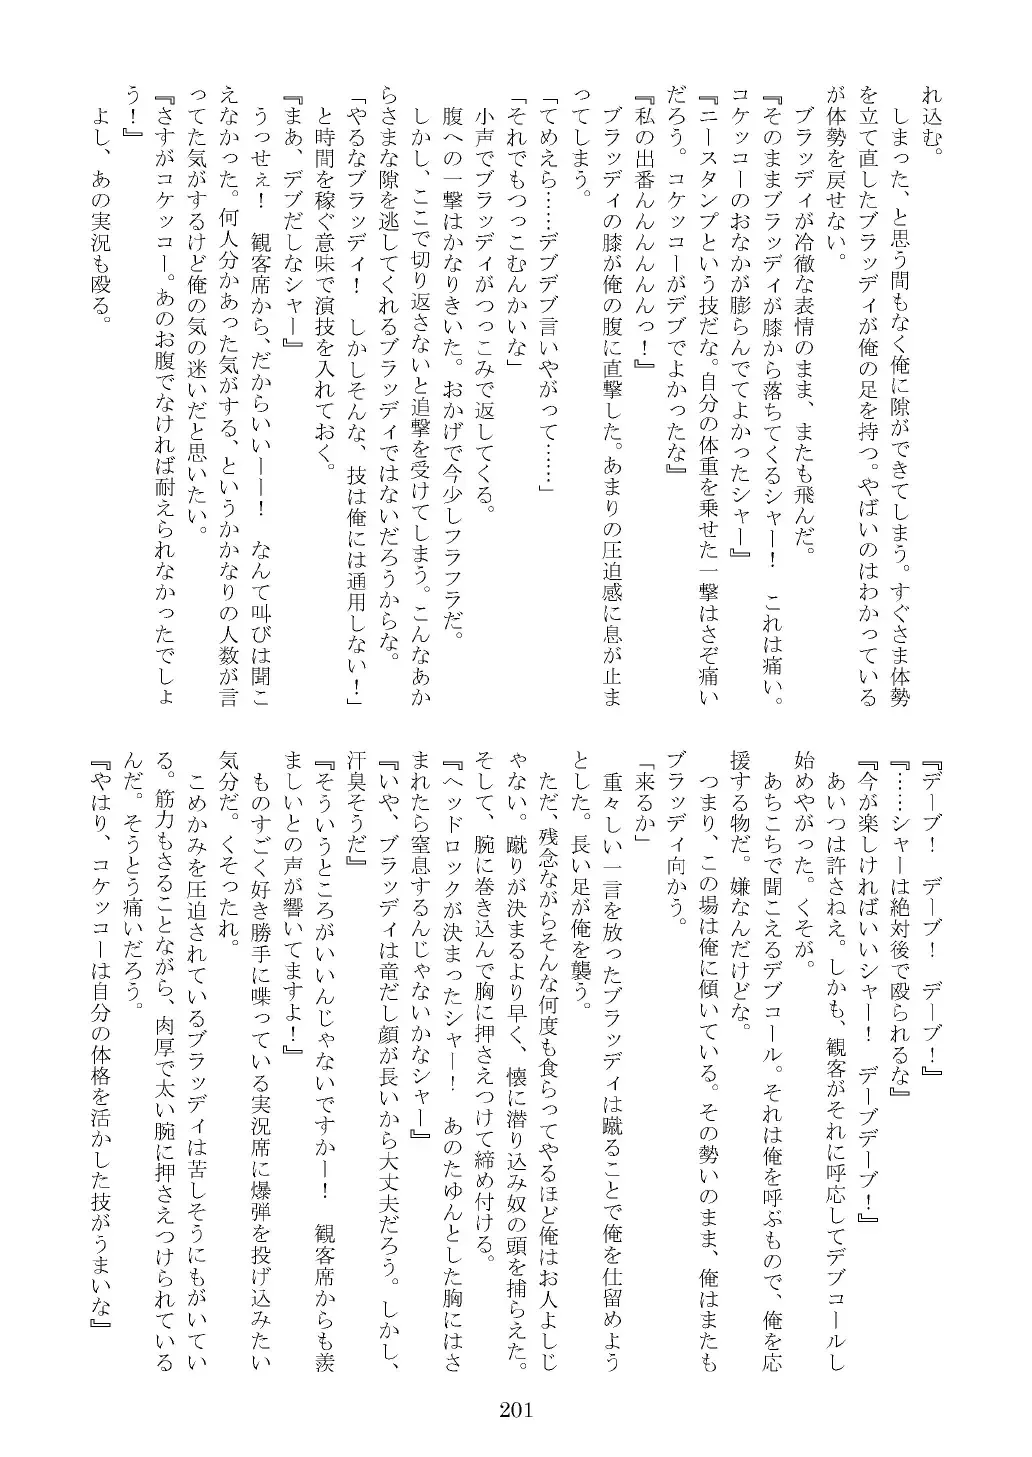 れ込む。
　しまった、と思う間もなく俺に隙ができてしまう。すぐさま体勢
を立て直したブラッディが俺の足を持つ。やばいのはわかっている
が体勢を戻せない。
　ブラッディが冷徹な表情のまま、またも飛んだ。
『そのままブラッディが膝から落ちてくるシャー！　これは痛い。
コケッコーのおなかが膨らんでてよかったシャー』
『ニースタンプという技だな。自分の体重を乗せた一撃はさぞ痛い
だろう。コケッコーがデブでよかったな』
『私の出番んんんんんんっ！』
　ブラッディの膝が俺の腹に直撃した。あまりの圧迫感に息が止ま
ってしまう。
「てめえら……デブデブ言いやがって……」
「それでもつっこむんかいな」
　小声でブラッディがつっこみで返してくる。
　腹への一撃はかなりきいた。おかげで今少しフラフラだ。
　しかし、ここで切り返さないと追撃を受けてしまう。こんなあか
らさまな隙を逃してくれるブラッディではないだろうからな。
「やるなブラッディ！　しかしそんな、技は俺には通用しない！」
　と時間を稼ぐ意味で演技を入れておく。
『まあ、デブだしなシャー』
　うっせぇ！　観客席から、だからいい――！　なんて叫びは聞こ
えなかった。何人分かあった気がする、というかかなりの人数が言
ってた気がするけど俺の気の迷いだと思いたい。
『さすがコケッコー。あのお腹でなければ耐えられなかったでしょ
う！』
　よし、あの実況も殴る。
『デーブ！　デーブ！　デーブ！』
『……シャーは絶対後で殴られるな』
『今が楽しければいいシャー！　デーブデーブ！』
　あいつは許さねえ。しかも、観客がそれに呼応してデブコールし
始めやがった。くそが。
　あちこちで聞こえるデブコール。それは俺を呼ぶもので、俺を応
援する物だ。嫌なんだけどな。
　つまり、この場は俺に傾いている。その勢いのまま、俺はまたも
ブラッディ向かう。
「来るか」
　重々しい一言を放ったブラッディは蹴ることで俺を仕留めよう
とした。長い足が俺を襲う。
　ただ、残念ながらそんな何度も食らってやるほど俺はお人よしじ
ゃない。蹴りが決まるより早く、懐に潜り込み奴の頭を捕らえた。
そして、腕に巻き込んで胸に押さえつけて締め付ける。
『ヘッドロックが決まったシャー！　あのたゆんとした胸にはさ
まれたら窒息するんじゃないかなシャー』
『いや、ブラッディは竜だし顔が長いから大丈夫だろう。しかし、
汗臭そうだ』
『そういうところがいいんじゃないですかー！　観客席からも羨
ましいとの声が響いてますよ！』
　ものすごく好き勝手に喋っている実況席に爆弾を投げ込みたい
気分だ。くそったれ。
　こめかみを圧迫されているブラッディは苦しそうにもがいてい
る。筋力もさることながら、肉厚で太い腕に押さえつけられている
んだ。そうとう痛いだろう。
『やはり、コケッコーは自分の体格を活かした技がうまいな』
201